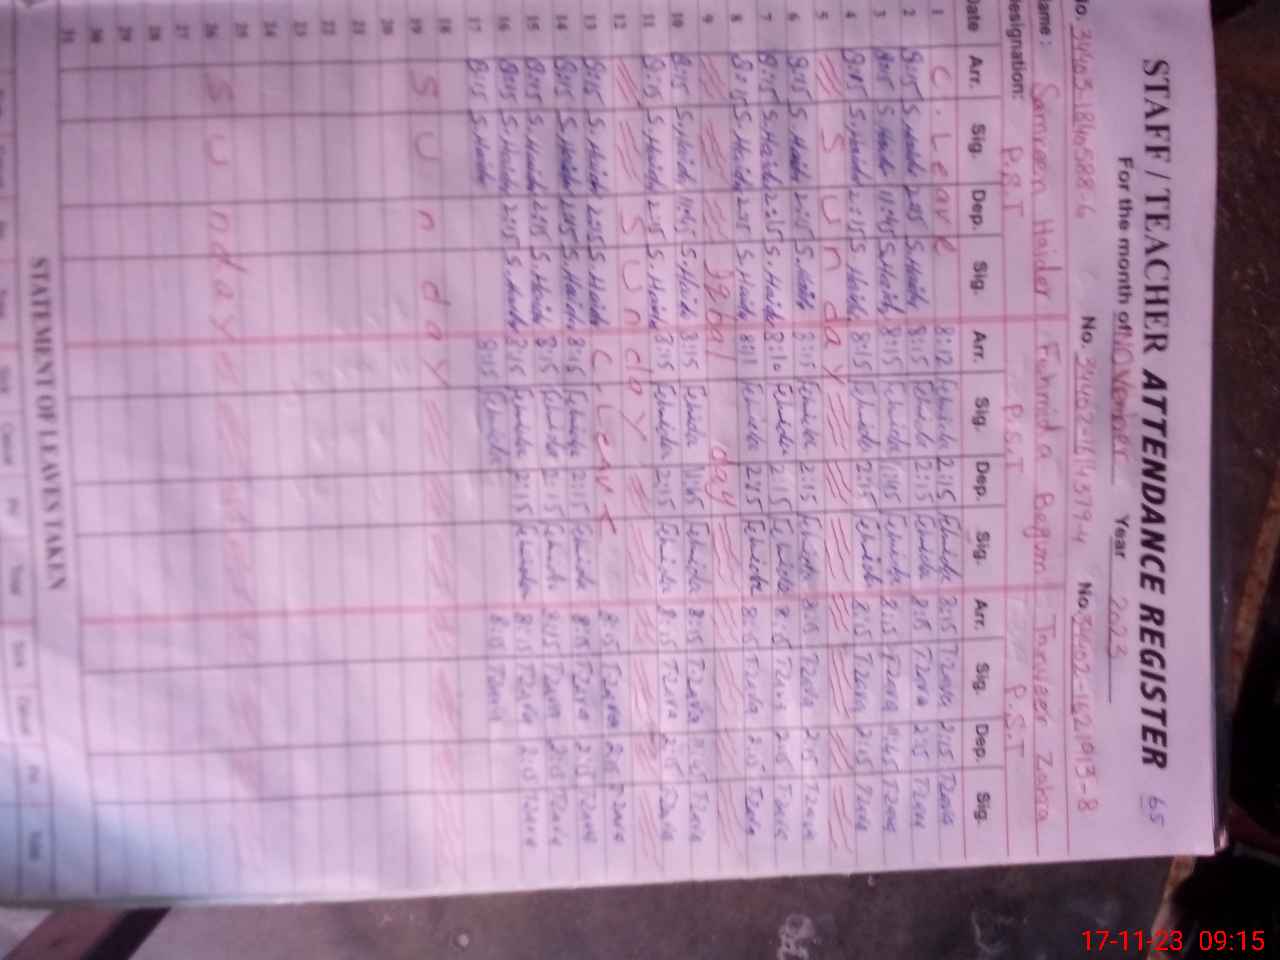 STAFF / TEACHER ATTENDANCE REGISTER 65
For the month of November Year 2023
No. No. No.
Name: Samreen Haider Fehmida Begum Tanveer Zahra
Designation: P.S.T P.S.T P.S.T
Date Arr. Sig. Dep. Sig. Arr. Sig. Dep. Sig. Arr. Sig. Dep. Sig.
1 C. Leave 8:12 Fehmida 2:15 Fehmida 8:15 Tzara 2:15 Tzara
2 8:15 S.Haider 2:15 S.Haider 8:15 Fehmida 2:15 Fehmida 8:15 Tzara 2:15 Tzara
3 8:15 S.Haider 11:45 S.Haider 8:15 Fehmida 11:45 Fehmida 8:15 Tzara 11:45 Tzara
4 8:15 S.Haider 2:15 S.Haider 8:15 Fehmida 2:15 Fehmida 8:15 Tzara 2:15 Tzara
5 Sunday
6 8:15 S.Haider 2:15 S.Haider 8:11 Fehmida 2:15 Fehmida 8:15 Tzara 2:15 Tzara
7 8:15 S.Haider 2:15 S.Haider 8:10 Fehmida 2:15 Fehmida 8:15 Tzara 2:15 Tzara
8 8:15 S.Haider 2:15 S.Haider 8:11 Fehmida 2:15 Fehmida 8:15 Tzara 2:15 Tzara
9 Iqbal day
10 8:15 S.Haider 11:45 S.Haider 8:15 Fehmida 11:45 Fehmida 8:15 Tzara 11:45 Tzara
11 8:15 S.Haider 2:15 S.Haider 8:15 Fehmida 2:15 Fehmida 8:15 Tzara 2:15 Tzara
12 Sunday
13 8:15 S.Haider 2:15 S.Haider C. Leave 8:15 Tzara 2:15 Tzara
14 8:15 S.Haider 2:15 S.Haider 8:15 Fehmida 2:15 Fehmida 8:15 Tzara 2:15 Tzara
15 8:15 S.Haider 2:15 S.Haider 8:15 Fehmida 2:15 Fehmida 8:15 Tzara 2:15 Tzara
16 8:15 S.Haider 2:15 S.Haider 8:15 Fehmida 2:15 Fehmida 8:15 Tzara 2:15 Tzara
17 8:15 S.Haider 8:15 Fehmida 8:15 Tzara
18
19 Sunday
20
21
22
23
24
25
26 Sunday
27
28
29
30
31
STATEMENT OF LEAVES TAKEN
17-11-23 09:15